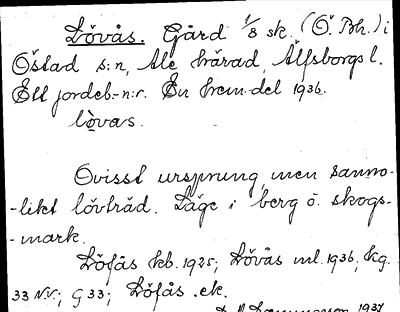 Lövås. Gård 1/8 sk. (Ö. Bh.) i
Östad s:n, Ale härad, Älfsborgs l.
Ett jordeb.-n:r. En hem.-del 1936.
lòvas.
Ovisst ursprung, men sanno-
-likt lövträd. Läge i berg o. skogs-
-mark.
Löfås kb. 1925; Lövås ml. 1936, Kg.
33 N.V.; G 33; Löfås ek.
1937